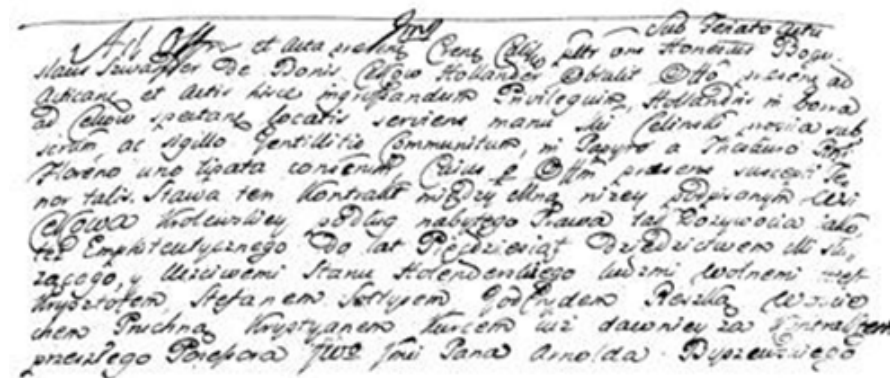 Sub Feriato actu
Ad Offm et Acta presens Crens Calis psltr vns Honestus Bogu
slaus Szwander De Bonis Cekow Hollander Obtulit Offo presens ad
acticans et Actis hisce ingrossandum Privilegium, Hollandris in borra
ad Cekow spectans locatis serviens manu Celinski propria sub
scrum, ac sigillo Gentilitio Communitum, in Papyro a Thesauro
Floreno uno tipata contentum, Cuius p Offm presens suscepti Te
nor talis. Stawa ten Kontrakt między niżey podpisanym wsi
Cekowa Krolewskiey podług nabytego Prawa tak Dożywocia iako,
też Emphiteutycznego Do lat Pięćdziesiąt Dziedzictwem Mi słu
żącego, y Uczciwemi Stanu Holenderskiego ludzmi wolnemi
Krysztofem, Stefanem Sołtysem Godfrydem Reszką Woycie
chem Pruchną Krystyanem Kurcem iuż dawniey za Kontraktem
przeszłego Possesora JWo Jmci Pana Arnolda Byszewskiego